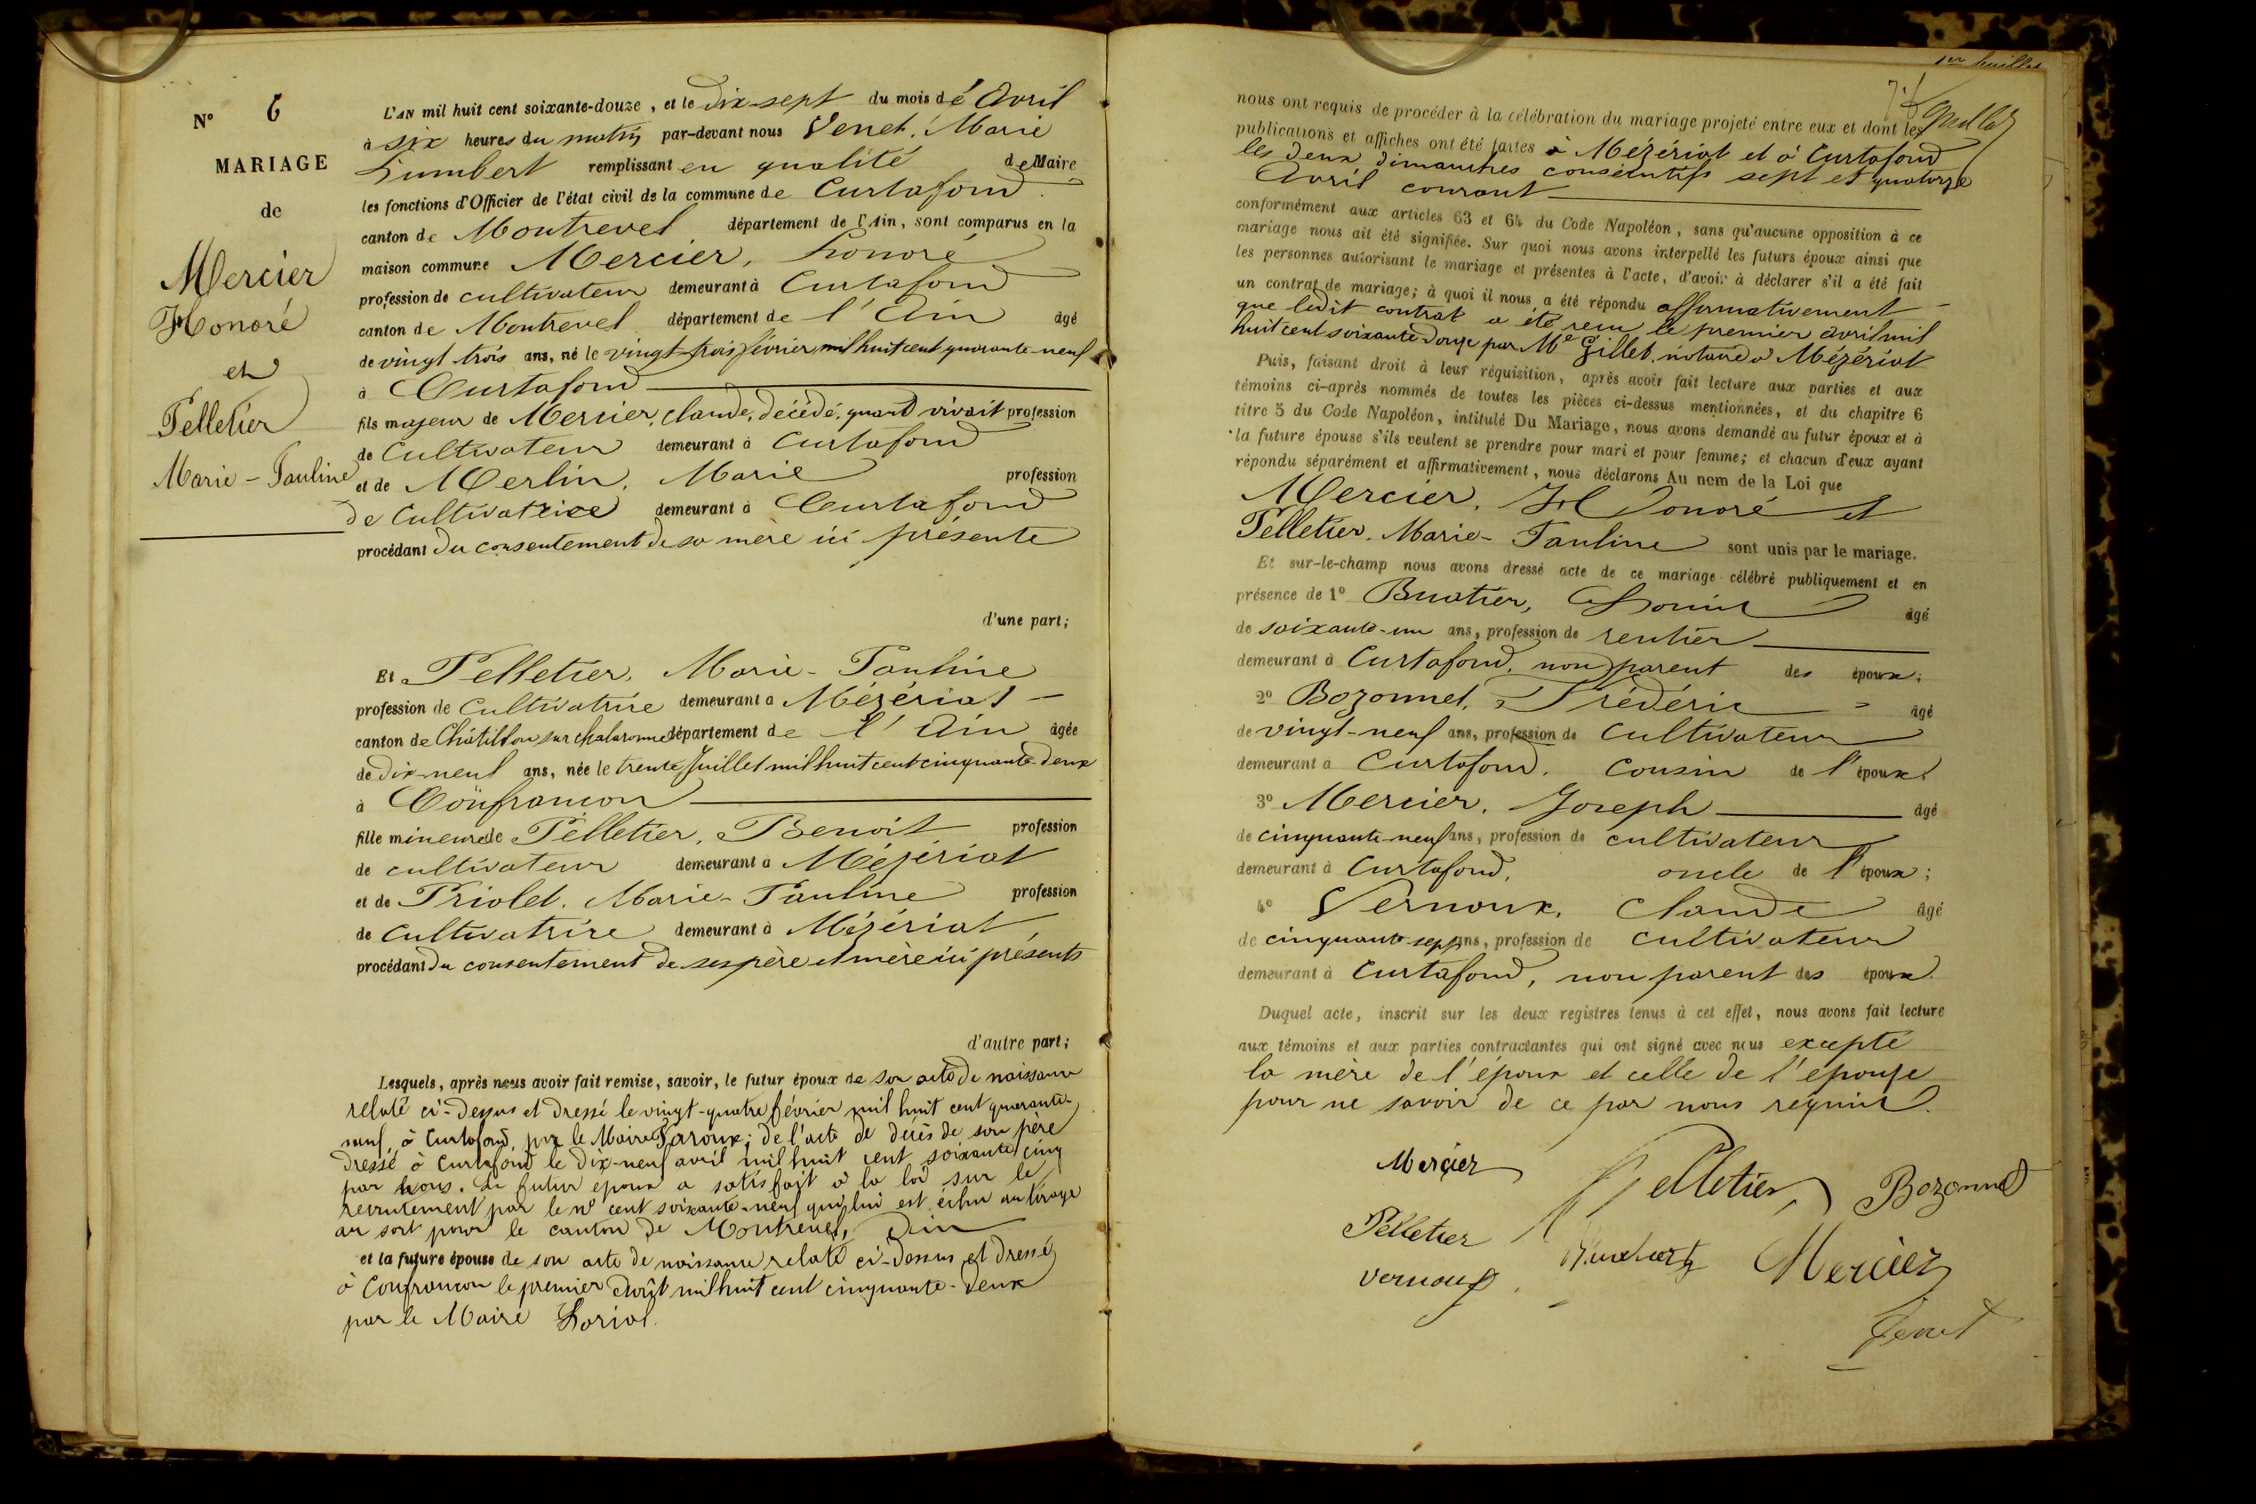 N° 6
MARIAGE
de
Mercier
Honoré
et
Pelletier
Marie-Pauline
L'AN mil huit cent soixante-douze, et le dix-sept du mois dé Avril
à six heures du matin par-devant nous Venet, Marie
Lumbert remplissant en qualité de Maire
les fonctions d'Officier de l'état civil de la commune de Curtafond
canton de Montrevel département de l'Ain, sont comparus en la
maison commune Mercier, honoré
profession de cultivateur demeurant à Curtafond
canton de Montrevel département de l'Ain âgé
de vingt trois ans, né le vingt-trois février mil huit cent quarante-neuf
à Curtafond
fils majeur de Mercier, Claude, décédé, quand vivait profession
de Cultivateur demeurant à Curtafond
et de Merlin, Marie profession
de Cultivatrice demeurant à Curtafond
procédant du consentement de sa mère ici présente
d'une part;
Et Pelletier, Marie-Pauline
profession de Cultivatrice demeurant à Mézériat
canton de Châtillon sur chalaronne département de l'Ain âgée
de Dix-neuf ans, née le trente Juillet mil huit cent cinquante-deux
à Confrançon
fille mineure de Pelletier, Benoit profession
de cultivateur demeurant à Mézériat
et de Priolet, Marie-Pauline profession
de Cultivatrice demeurant à Mézériat
procédant du consentement de ses père et mère ici présents
d'autre part;
Lesquels, après nous avoir fait remise, savoir, le futur époux de son acte de naissance
relaté ci-dessus et dressé le vingt-quatre février mil huit cent quarante-
neuf à Curtafond, par le Maire; de l'acte de décès de son père
dressé à Curtafond le dix-neuf avril mil huit cent soixante cinq
par nous. Le futur époux a satisfait à la loi sur le
recrutement par le n° cent soixante-neuf qui lui est échu au tirage
au sort pour le canton de Montrevel, Ain
et la future épouse de son acte de naissance relaté ci-dessus et dressé
à Confrançon le premier Août mil huit cent cinquante-deux
par le Maire Loriol.
1er feuillet
nous ont requis de procéder à la célébration du mariage projeté entre eux et dont les
publications et affiches ont été faites à Mézériat et à Curtafond
les deux dimanches consécutifs sept et quatorze
Avril courant
conformément aux articles 63 et 64 du Code Napoléon, sans qu'aucune opposition à ce
mariage nous ait été signifiée. Sur quoi nous avons interpellé les futurs époux ainsi que
les personnes autorisant le mariage et présentes à l'acte, d'avoir à déclarer s'il a été fait
un contrat de mariage; à quoi il nous a été répondu affirmativement
que ledit contrat a été reçu le premier avril mil
huit cent soixante-douze par Me Gillet, notaire à Mézériat
Puis, faisant droit à leur réquisition, après avoir fait lecture aux parties et aux
témoins ci-après nommés de toutes les pièces ci-dessus mentionnées, et du chapitre 6
titre 5 du Code Napoléon, intitulé Du Mariage, nous avons demandé au futur époux et à
la future épouse s'ils veulent se prendre pour mari et pour femme; et chacun d'eux ayant
répondu séparément et affirmativement, nous déclarons Au nom de la Loi que
Mercier, Honoré et
Pelletier, Marie-Pauline sont unis par le mariage.
Et sur-le-champ nous avons dressé acte de ce mariage célébré publiquement et en
présence de 1° Buatier, âgé
de soixante-un ans, profession de rentier
demeurant à Curtafond, non parent des époux;
2° Bozonnet, Frédéric âgé
de vingt-neuf ans, profession de Cultivateur
demeurant à Curtafond, Cousin de l'époux;
3° Mercier, Joseph âgé
de cinquante-neuf ans, profession de cultivateur
demeurant à Curtafond, oncle de l'époux;
4° Vernoux, Claude âgé
de cinquante-sept ans, profession de cultivateur
demeurant à Curtafond, non parent des époux
Duquel acte, inscrit sur les deux registres tenus à cet effet, nous avons fait lecture
aux témoins et aux parties contractantes qui ont signé avec nous excepté
la mère de l'époux et celle de l'épouse
pour ne savoir de ce par nous requise.
Mercier
Pelletier
Bozonnet
Pelletier
Mercier
Vernoux
Venet